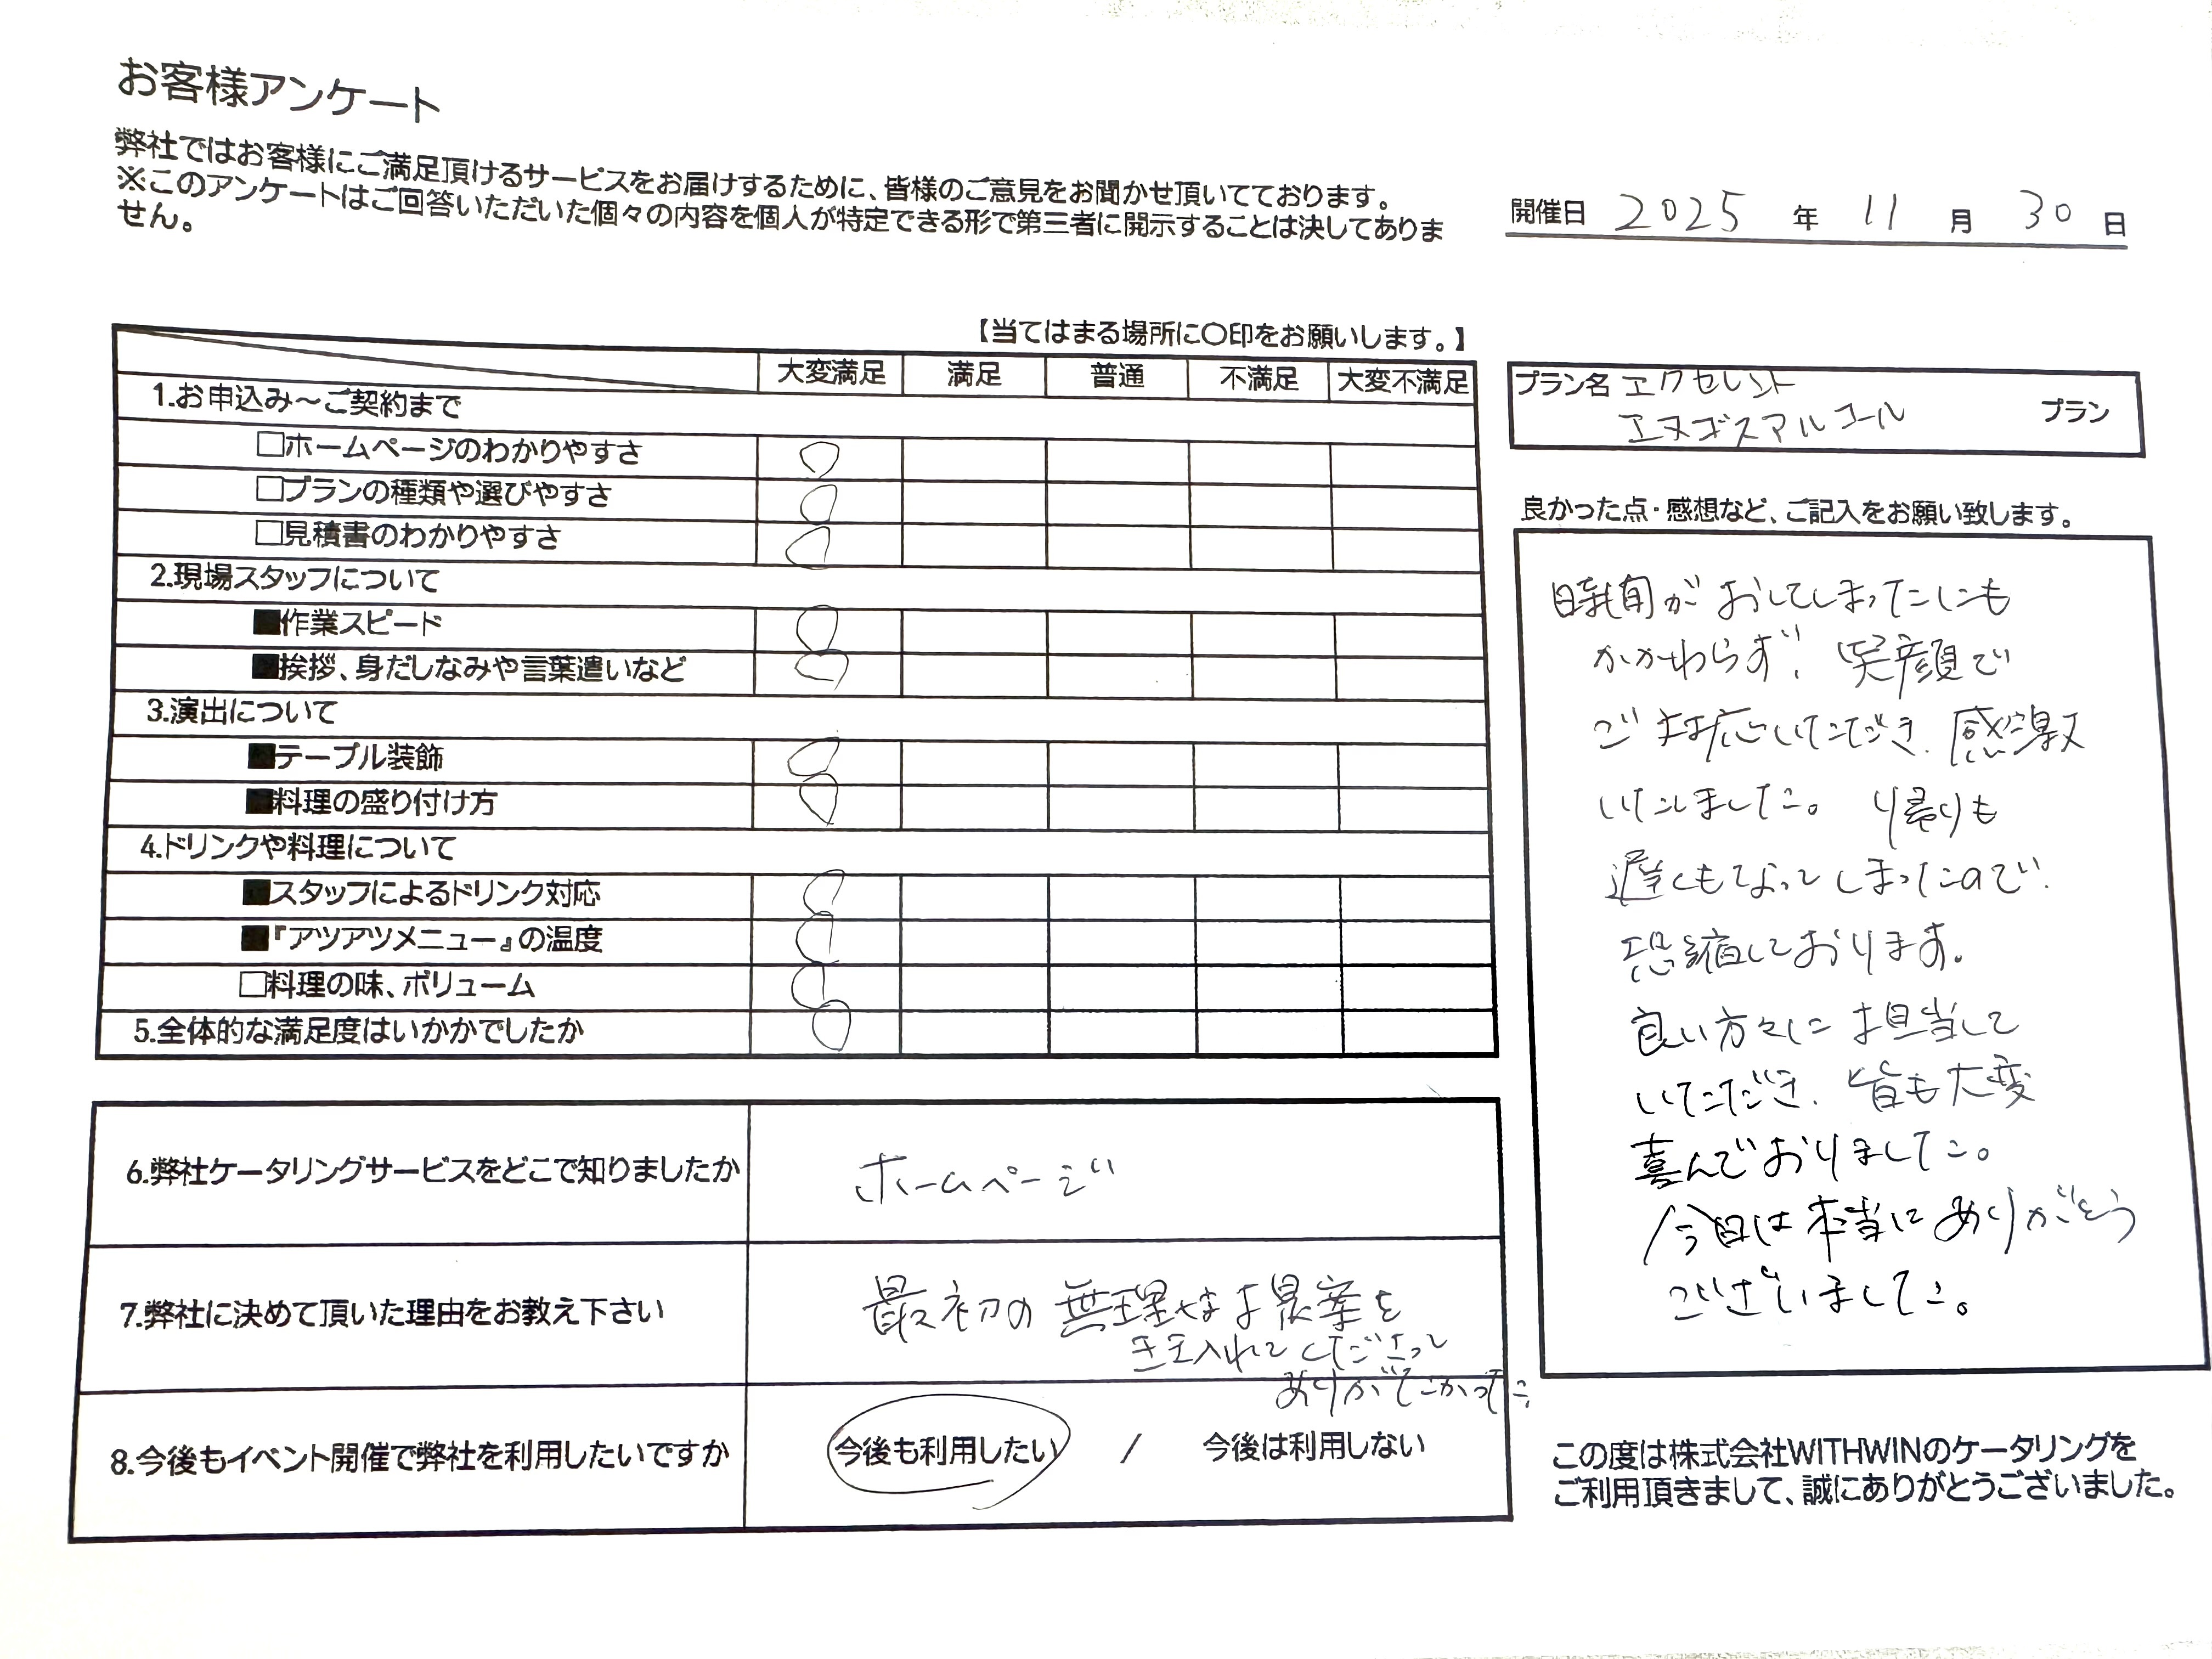 お客様アンケート
弊社ではお客様にご満足頂けるサービスをお届けするために、皆様のご意見をお聞かせ頂いてております。
※このアンケートはご回答いただいた個々の内容を個人が特定できる形で第三者に開示することは決してありま
せん。
開催日 2025 年 11 月 30 日
【当てはまる場所に〇印をお願いします。】
大変満足 満足 普通 不満足 大変不満足
1.お申込み～ご契約まで
□ホームページのわかりやすさ ○
□プランの種類や選びやすさ ○
□見積書のわかりやすさ ○
2.現場スタッフについて
■作業スピード ○
■挨拶、身だしなみや言葉遣いなど ○
3.演出について
■テーブル装飾 ○
■料理の盛り付け方 ○
4.ドリンクや料理について
■スタッフによるドリンク対応 ○
■『アツアツメニュー』の温度 ○
□料理の味、ボリューム ○
5.全体的な満足度はいかかでしたか ○
6.弊社ケータリングサービスをどこで知りましたか ホームページ
7.弊社に決めて頂いた理由をお教え下さい 最初の無理な
を
入れて くださって
ありがたかった
8.今後もイベント開催で弊社を利用したいですか 今後も利用したい / 今後は利用しない
プラン名 エクセレント
アルコール プラン
良かった点・感想など、ご記入をお願い致します。
時間がおしてしまったにも
かかわらず、笑顔で
ご対応いただき、感激
いたしました。 帰りも
遅くもなってしまったので、
恐縮しております。
良い方々に担当して
いただき、皆も大変
喜んでおりました。
今日は本当にありがとう
ございました。
この度は株式会社WITHWINのケータリングを
ご利用頂きまして、誠にありがとうございました。